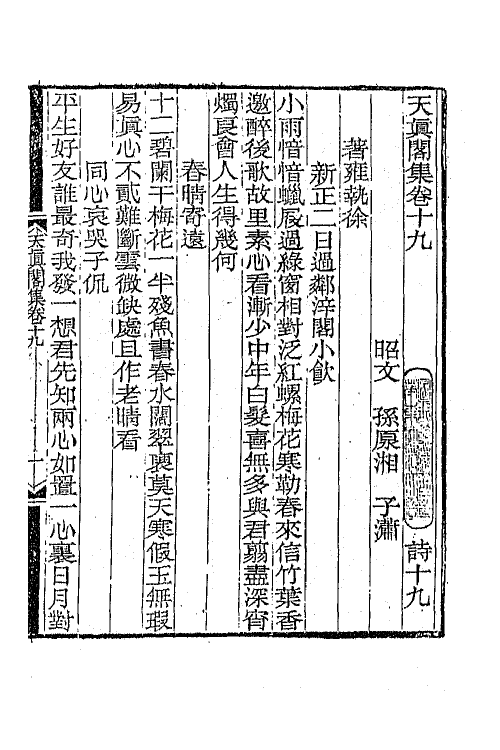 天眞閣集卷十九　詩十九
昭文　孫原湘　子瀟
著雍執徐
新正二日過鄰滓閣小飮
小雨愔愔蠟屐過綠窗相對泛紅螺梅花寒勒春來信竹葉香
邀醉後歌故里素心看漸少中年白髮喜無多與君翦盡深宵
燭良會人生得幾何
春晴寄遠
十二碧闌干梅花一半殘魚書春水闊翠裹莫天寒假玉無瑕
易眞心不貳難斷雲微缺處且作老晴看
同心哀哭子侃
平生好友誰最奇我發一想君先知兩心如置一心裏日月對
天眞閣集卷十九
一